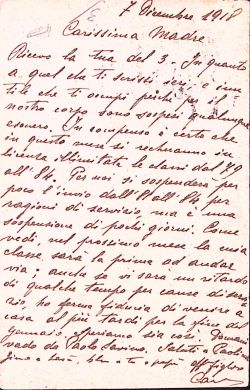 7 Dicembre 1918
Carissima Madre
Ricevo la tua del 3. In quanto
a quel che ti scrissi ieri è inu
tile che ti occupi perchè per il
nostro corpo sono sospesi qualunque
esonero. In compenso è certo che
in questo mese si recheranno in
licenza illimitata le classi dal 79
all' 84. Per noi si sospenderà per
poco l'invio dall' all' 84 per
ragioni di servizio, ma è una
sospensione di pochi giorni. Come
vedi, nel prossimo mese la mia
classe, sarà la prima ad andar
via; anche se vi sarà un ritardo
di qualche tempo per causa di servi
zio, ho ferma fiducia di venire a
casa al più tardi per la fine di
Gennaio, speriamo sia così. Domani
vado da Paolo Savino. Saluti a
e baci, a te e papà. aff figlio